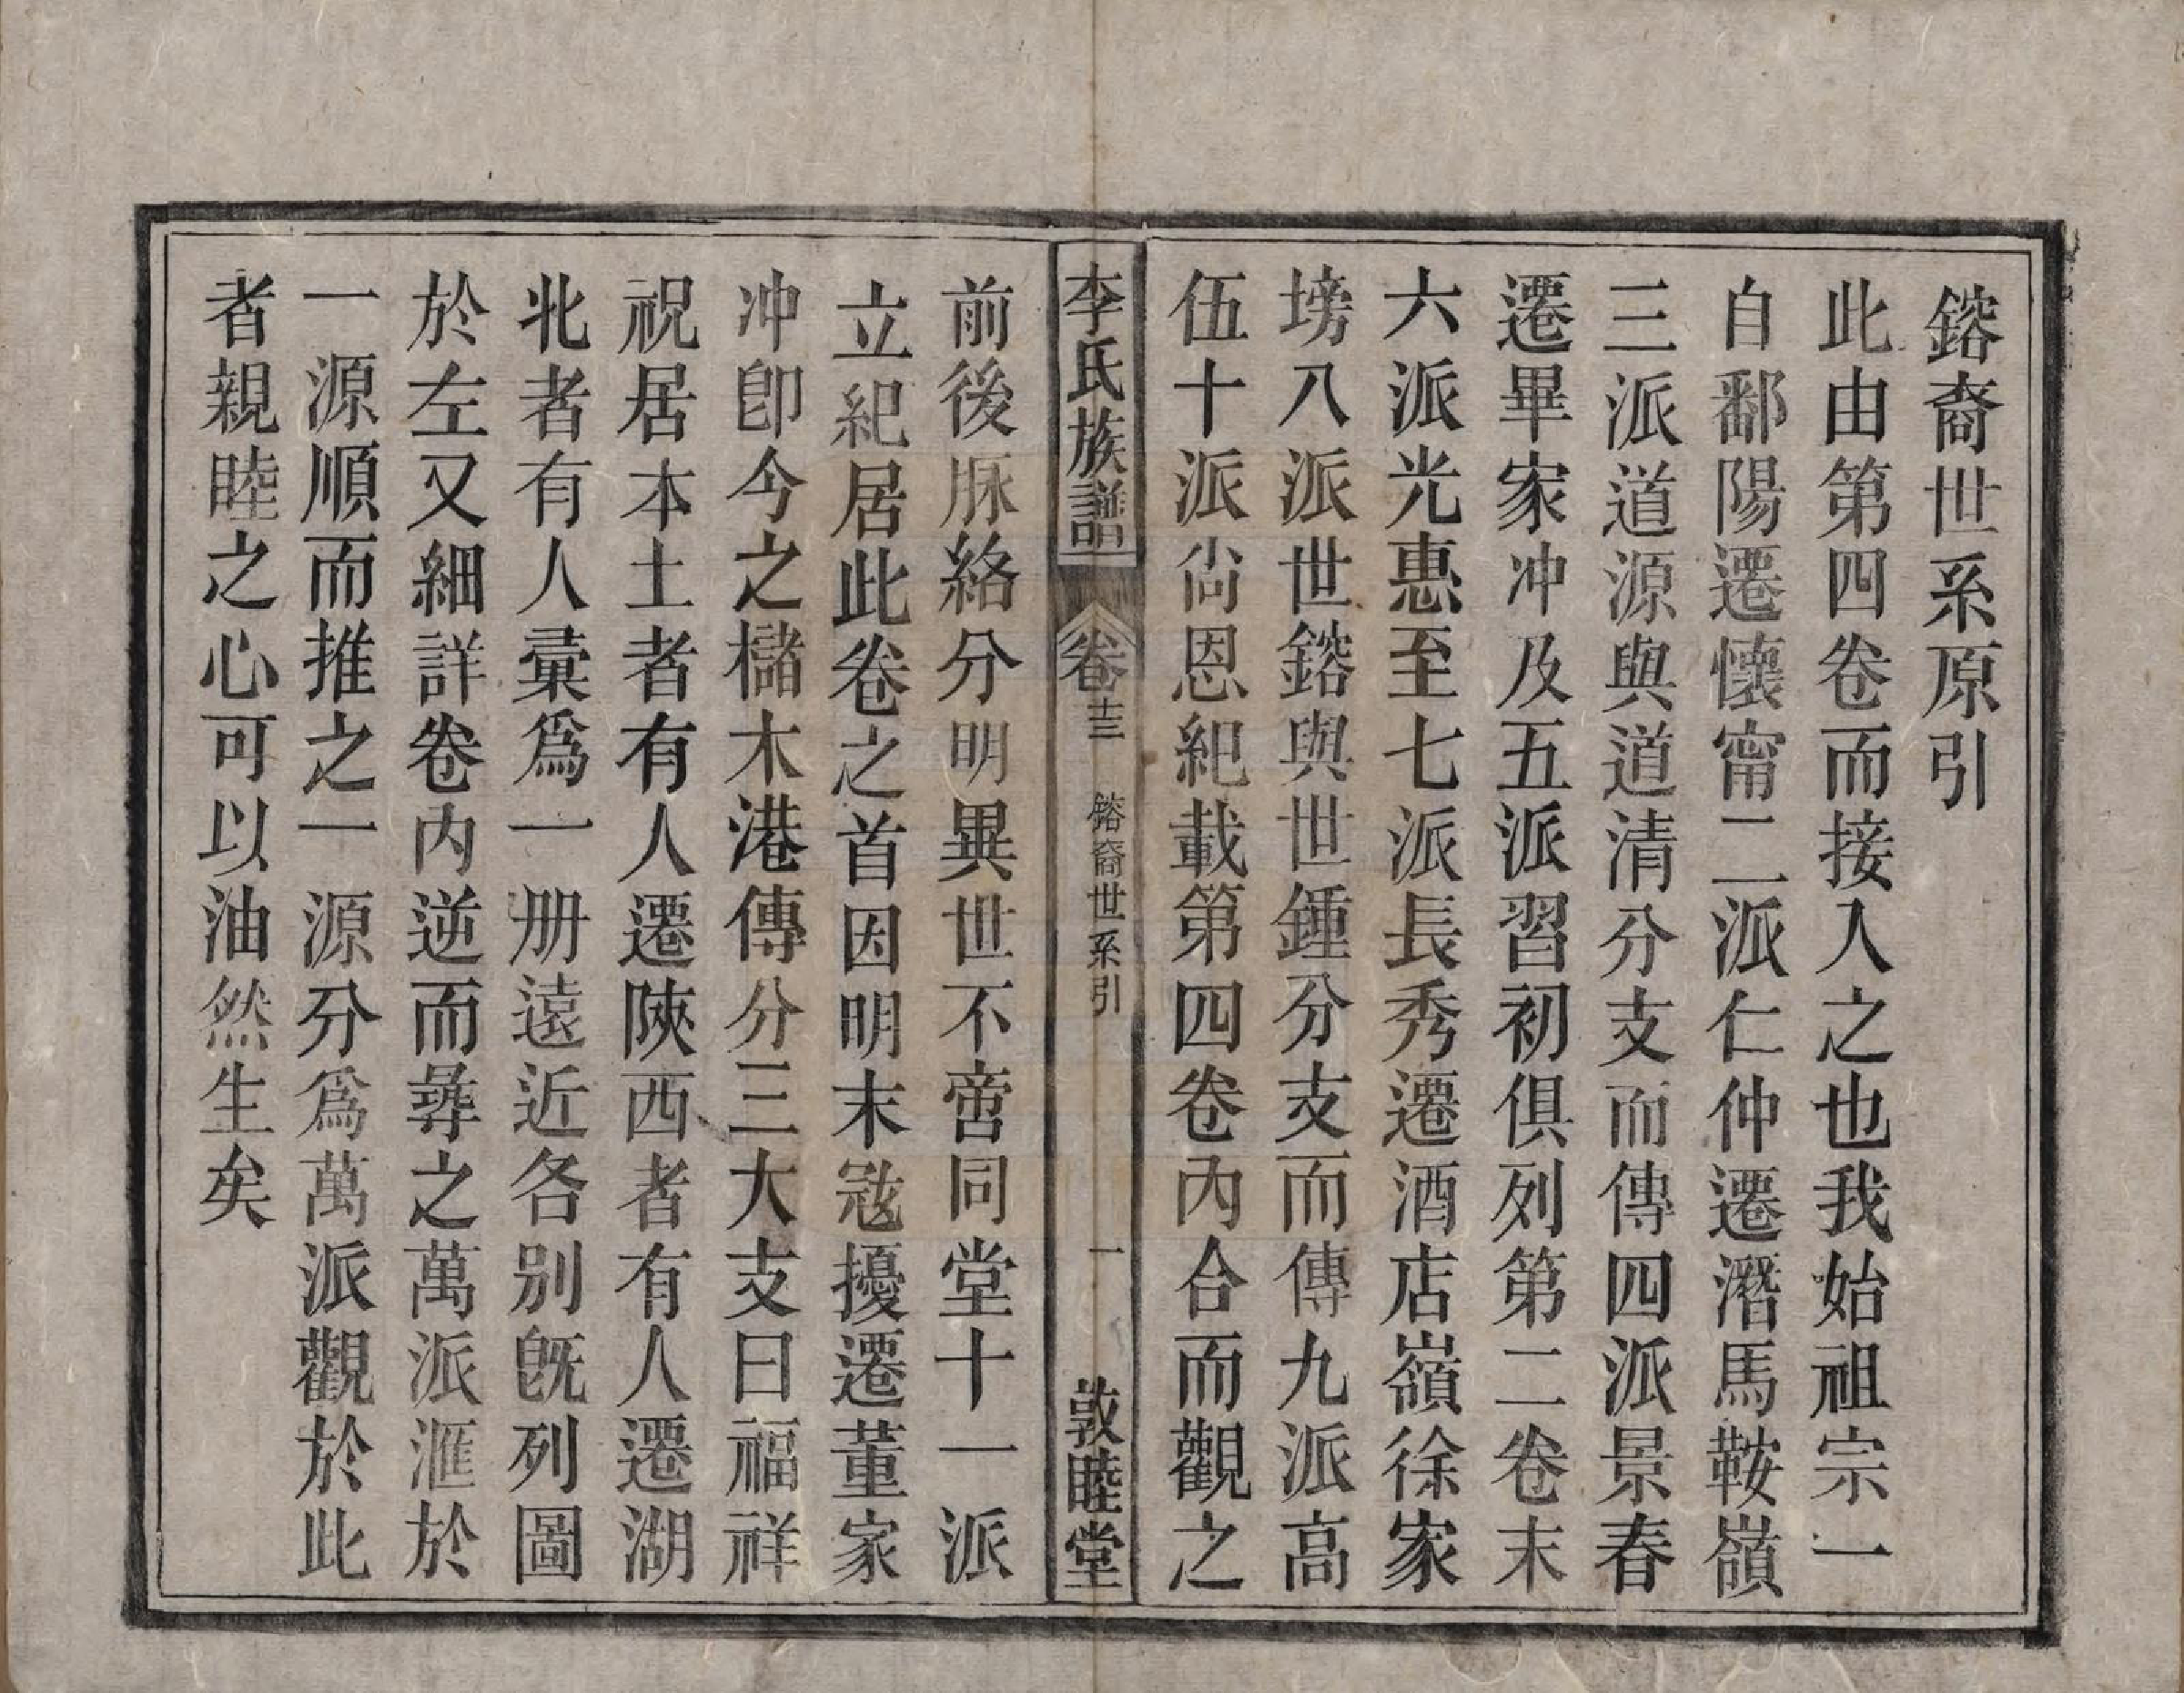 鎔裔世系原引
此由第四卷而接入之也我始祖宗一
自鄱陽遷懷甯二派仁仲遷潛馬鞍嶺
三派道源與道清分支而傳四派景春
遷畢家冲及五派習初俱列第二卷末
六派光惠至七派長秀遷酒店嶺徐家
塝八派世鎔與世鍾分支而傳九派高
伍十派尙恩紀載第四卷內合而觀之
李氏族譜
卷十三
鎔裔世系引
一
敦睦堂
前後脈絡分明異世不啻同堂十一派
立紀居此卷之首因明末冦擾遷董家
冲卽今之櫧木港傳分三大支曰福祥
祝居本土者有人遷陝西者有人遷湖
北者有人彙爲一册遠近各别旣列圖
於左又細詳卷内逆而尋之萬派滙於
一源順而推之一源分爲萬派觀於此
者親睦之心可以油然生矣